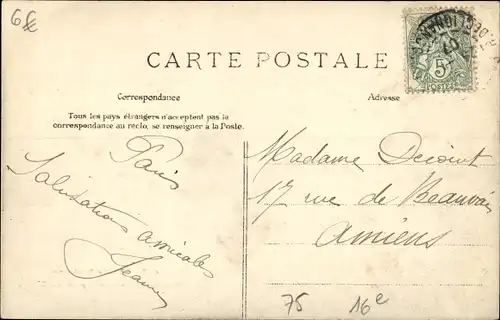 CARTE POSTALE
Correspondance
Adresse
Tous les pays étrangers n'acceptent pas la
correspondance au recto, se renseigner à la Poste.
5
POSTES
Paris
Salutations amicales
Jeanne
Madame Decoint
17 rue de Beauvais
Amiens
75 16e